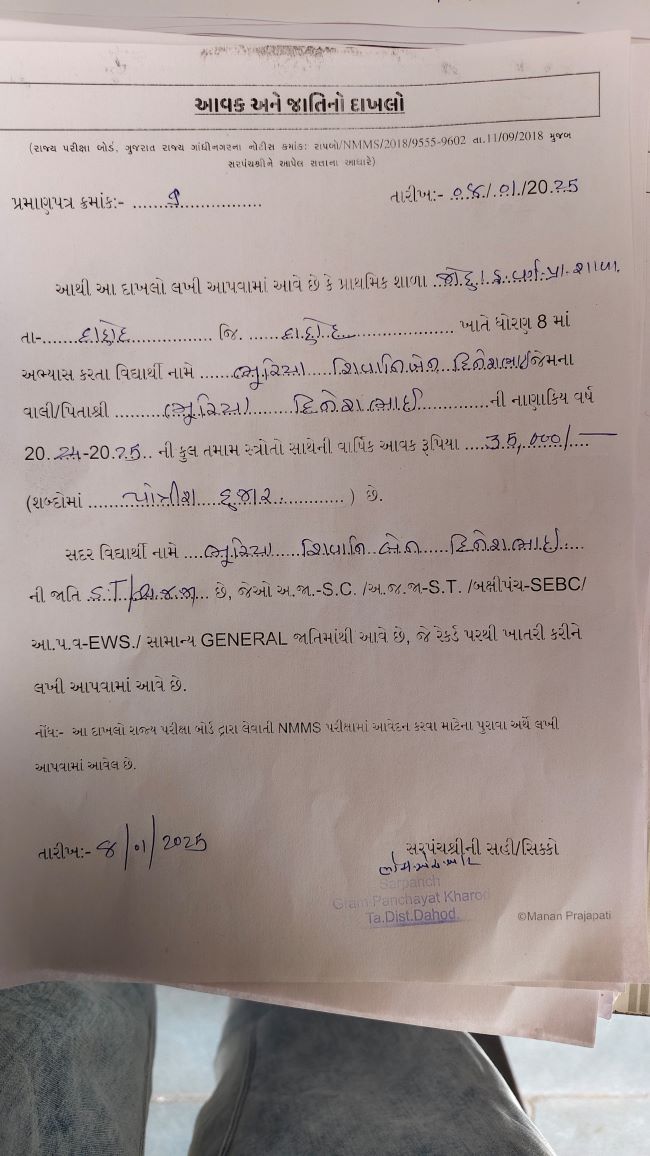 આવક અને જાતિનો દાખલો
(રાજ્ય પરીક્ષા બોર્ડ, ગુજરાત રાજ્ય ગાંધીનગરના નોટીસ ક્રમાંક: રાપબો/NMMS/2018/9555-9602 તા.11/09/2018 મુજબ
સરપંચશ્રીને આપેલ સત્તાના આધારે)
પ્રમાણપત્ર ક્રમાંક:- ....૧............. તારીખ:- ૦૮/.૦1./2025
આથી આ દાખલો લખી આપવામાં આવે છે કે પ્રાથમિક શાળા વર્ગ પ્રા. શાળા.
તા-.....દાહોદ............... જિ. .....દાહોદ.................. ખાતે ધોરણ 8 માં
અભ્યાસ કરતા વિદ્યાર્થી નામે .....ભૂરિયા....શિવાનિબેન..દિનેશભાઈ જેમના
વાલી/પિતાશ્રી ........ભૂરિયા......દિનેશભાઈ...........ની નાણાકિય વર્ષ
20.24-20.25.. ની કુલ તમામ સ્ત્રોતો સાથેની વાર્ષિક આવક રૂપિયા ....35,000/-
(શબ્દોમાં ......પાંત્રીશ હજાર............ ) છે.
સદર વિદ્યાર્થી નામે ....ભૂરિયા.....શિવાનિ બેન.....દિનેશભાઇ....
ની જાતિ S.T/અ.જ.જા... છે, જેઓ અ.જા.-S.C. /અ.જ.જા-S.T. /બક્ષીપંચ-SEBC/
આ.પ.વ-EWS./ સામાન્ય GENERAL જાતિમાંથી આવે છે, જે રેકર્ડ પરથી ખાતરી કરીને
લખી આપવામાં આવે છે.
નોંધ:- આ દાખલો રાજ્ય પરીક્ષા બોર્ડ દ્રારા લેવાતી NMMS પરીક્ષામાં આવેદન કરવા માટેના પુરાવા અર્થે લખી
આપવામાં આવેલ છે.
તારીખ:- 8/01/2025 સરપંચશ્રીની સહી/સિક્કો
Sarpanch
Gram Panchayat Kharod
Ta.Dist.Dahod
©Manan Prajapati